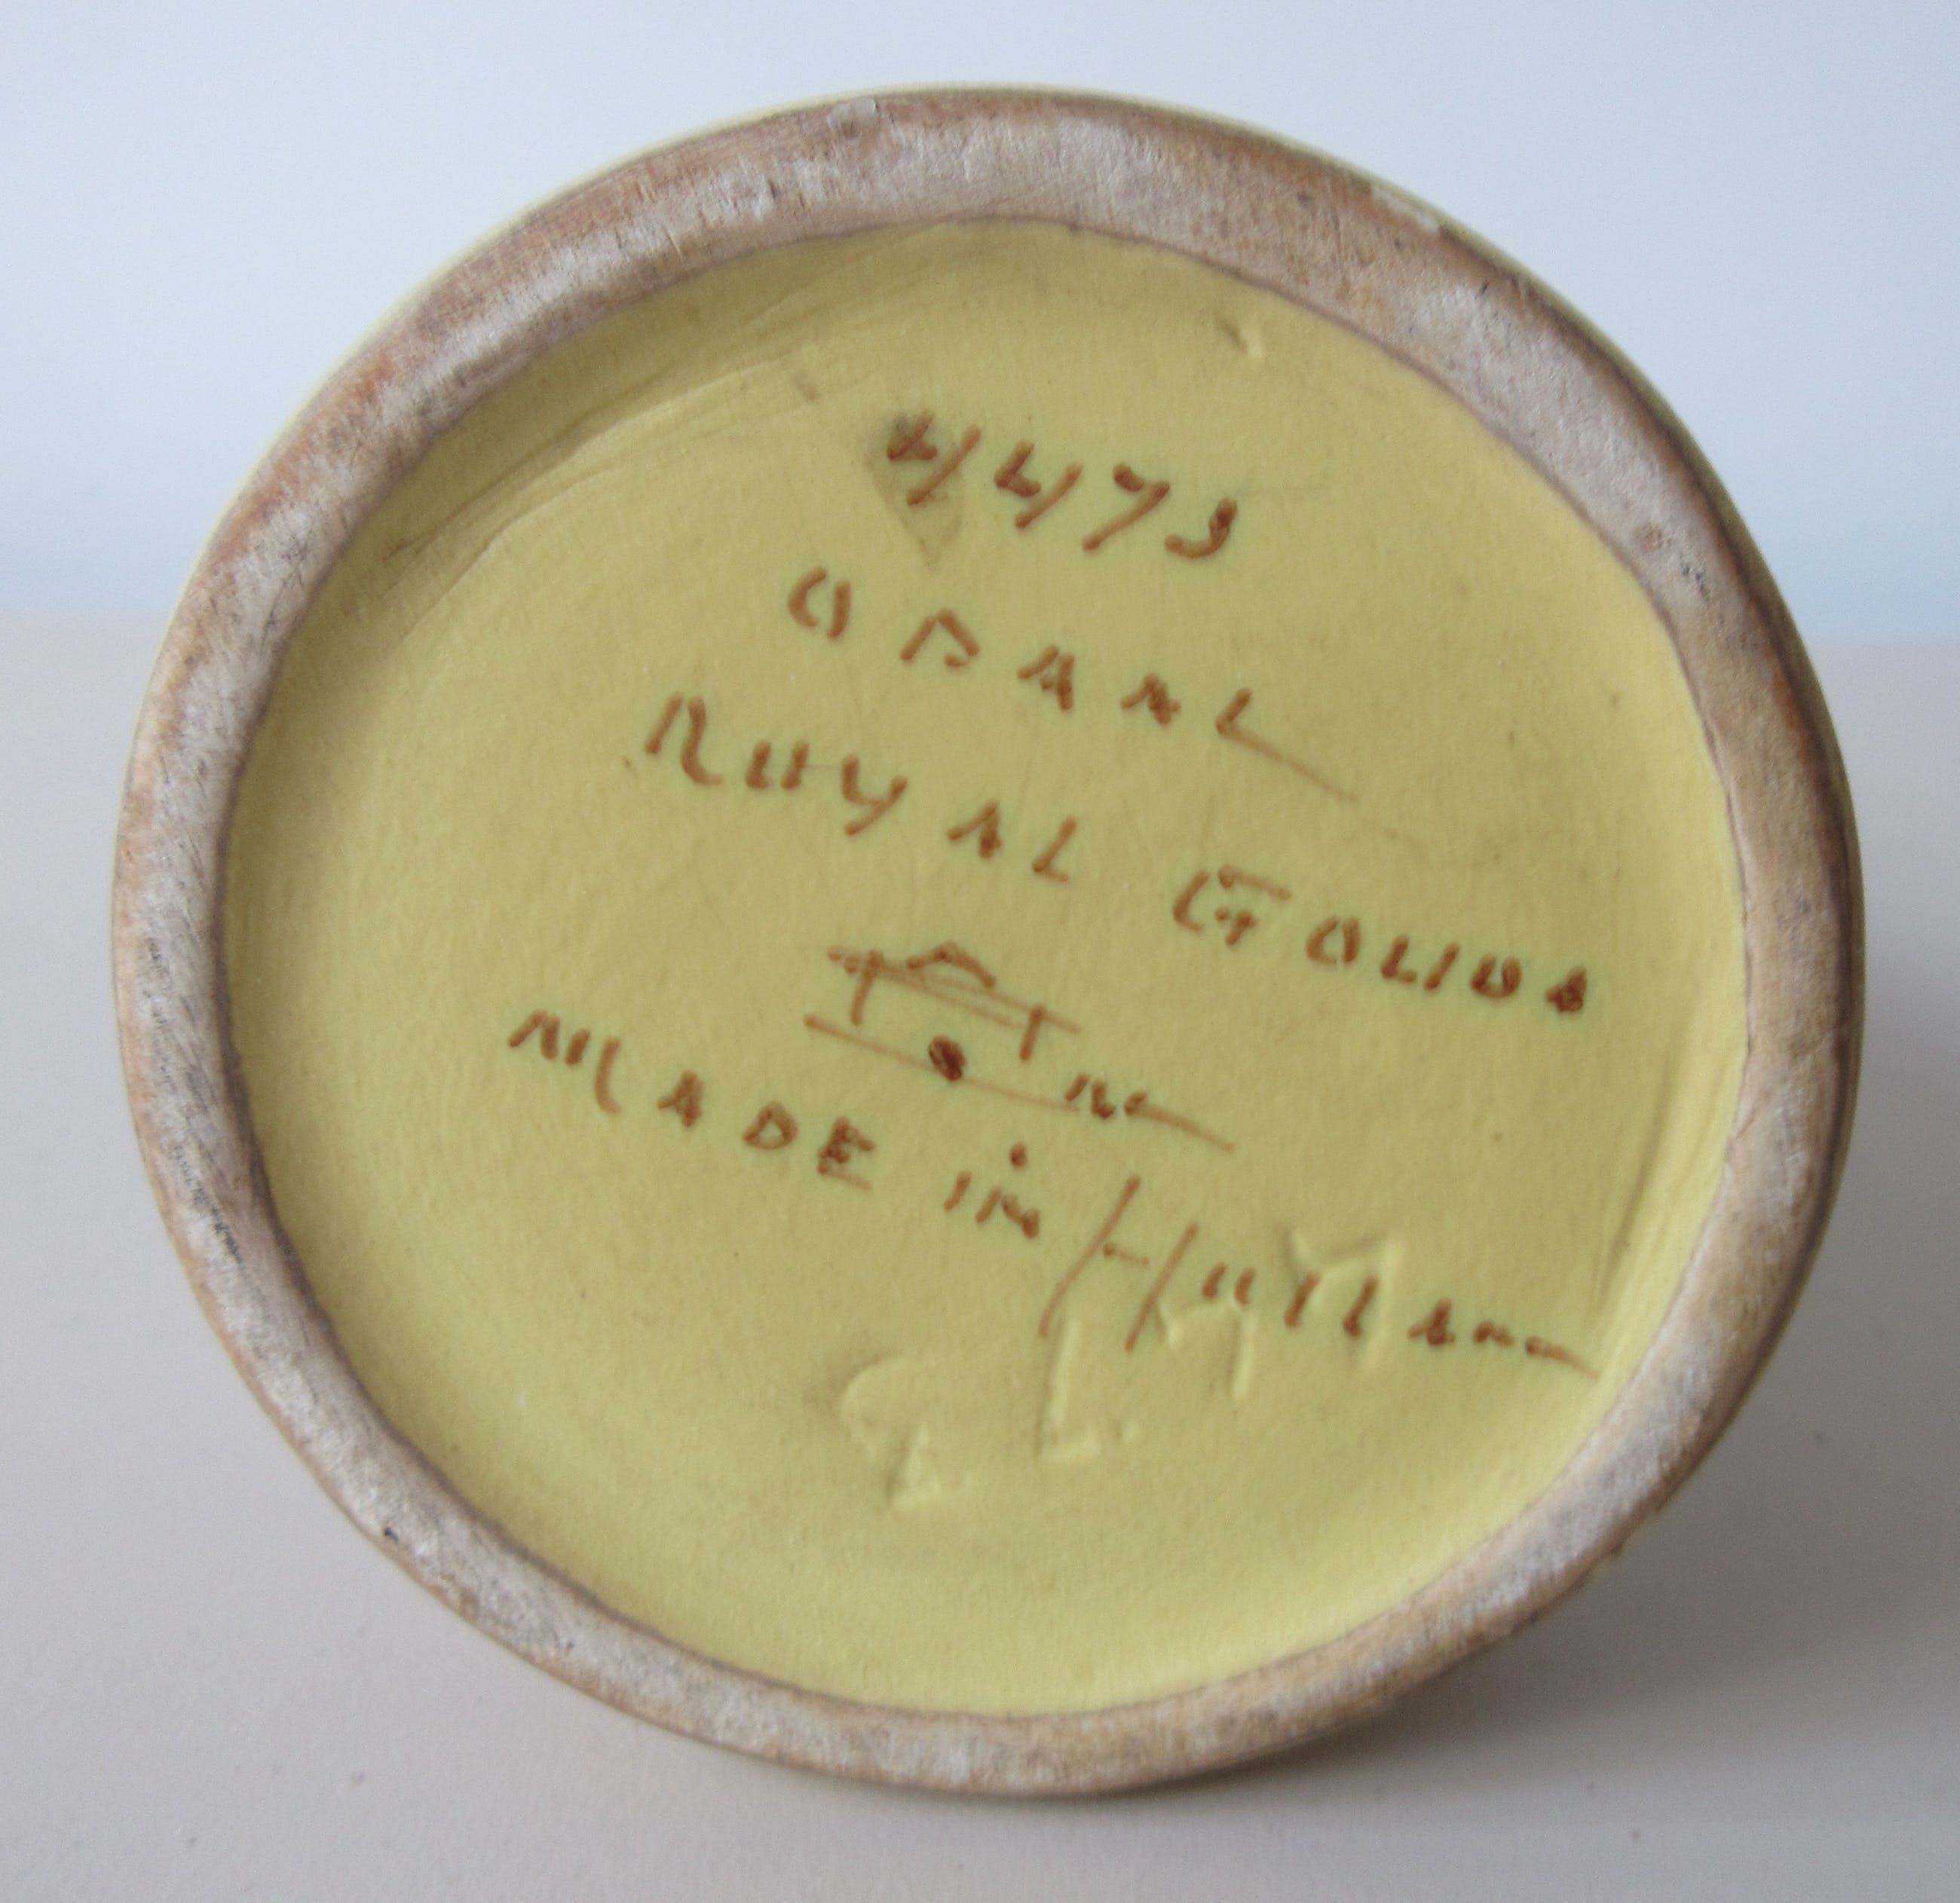 4473
OPAAL
ROYAL GOUDA
MADE in Holland